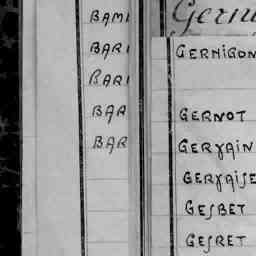 BAMI
BARI
BARI
BAR
BAR
Gerni
GERNIGON
GERNOT
GERVAIN
GERVAISE
GESBET
GESRET